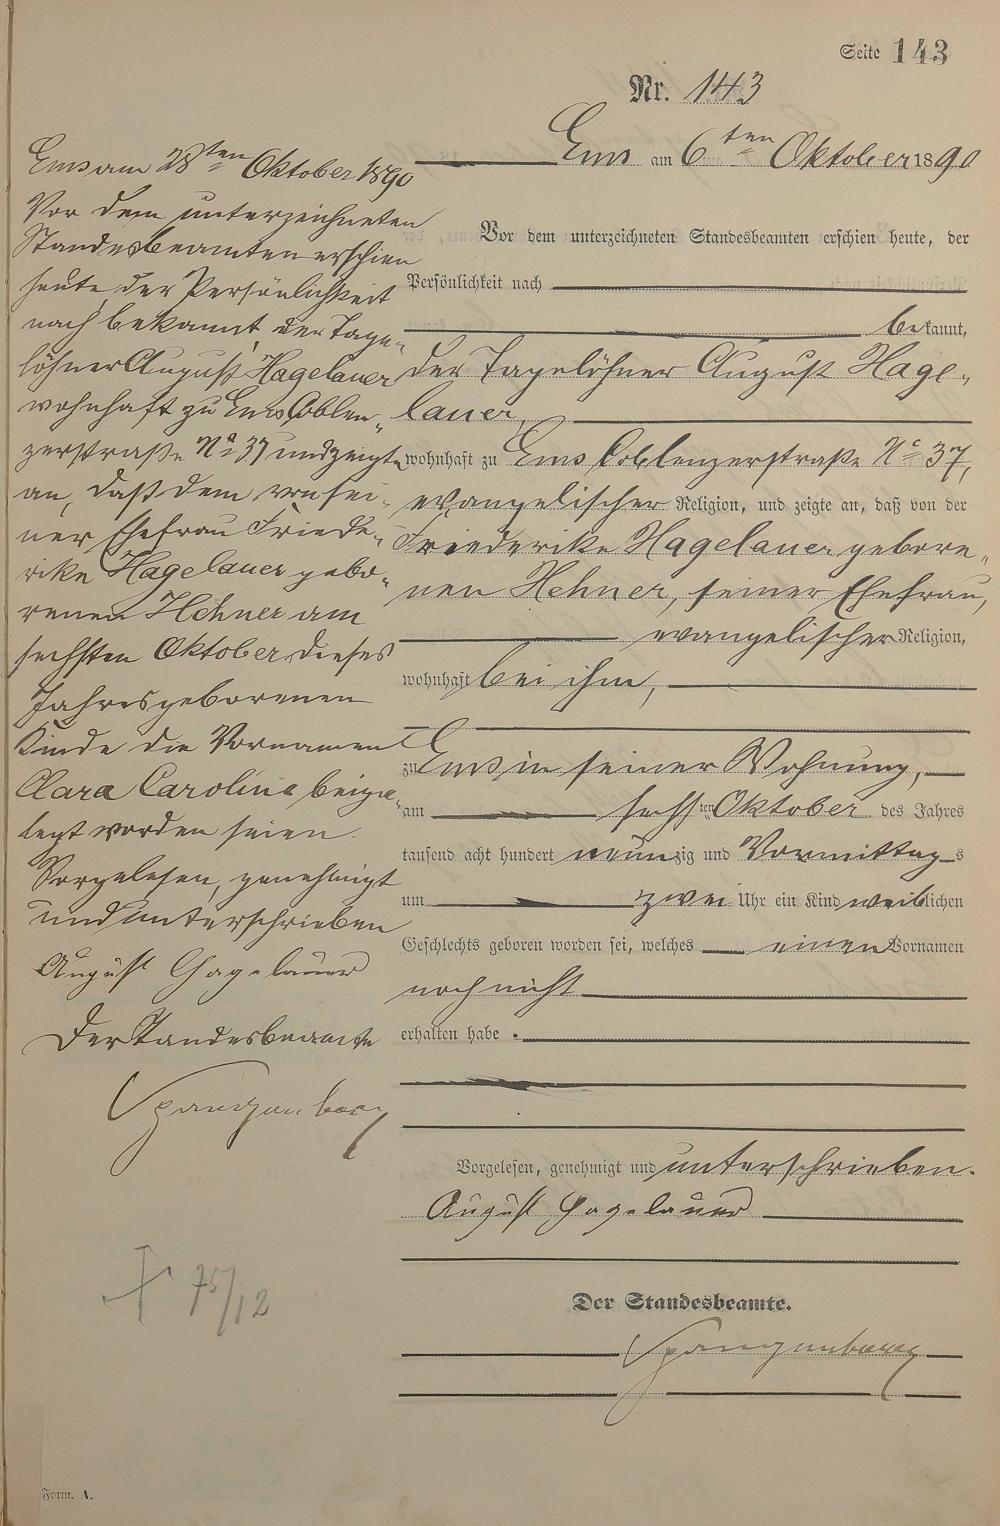 Seite 143
Nr. 143
Ems am 6ten Oktober 1890
Vor dem unterzeichneten Standesbeamten erschien heute, der
Persönlichkeit nach
bekannt,
der Tagelöhner August Hage-
lauer,
wohnhaft zu Ems Coblenzerstraße No 37,
evangelischer Religion, und zeigte an, daß von der
Friederike Hagelauer gebore-
nen Hehner, seiner Ehefrau,
evangelischer Religion,
wohnhaft bei ihm,
zu Ems in seiner Wohnung,
am sechsten Oktober des Jahres
tausend acht hundert neunzig und Vormittags
um zwei Uhr ein Kind weiblichen
Geschlechts geboren worden sei, welches einen Vornamen
noch nicht
erhalten habe.
Vorgelesen, genehmigt und unterschrieben.
August Hagelauer
Der Standesbeamte.
Spangenberg
Ems am 28ten Oktober 1890
Vor dem unterzeichneten
Standesbeamten erschien
heute, der Persönlichkeit
nach bekannt, der Tage-
löhner August Hagelauer
wohnhaft zu Ems Coblen-
zerstraße No 37 und zeigte
an, daß dem von sei-
ner Ehefrau Friede-
rike Hagelauer gebo-
renen Hehner am
sechsten Oktober dieses
Jahres geborenen
Kinde die Vornamen
Clara Carolina beige-
legt worden seien.
Vorgelesen, genehmigt
und unterschrieben
August Hagelauer
Der Standesbeamte
Spangenberg
75/12
Form. A.